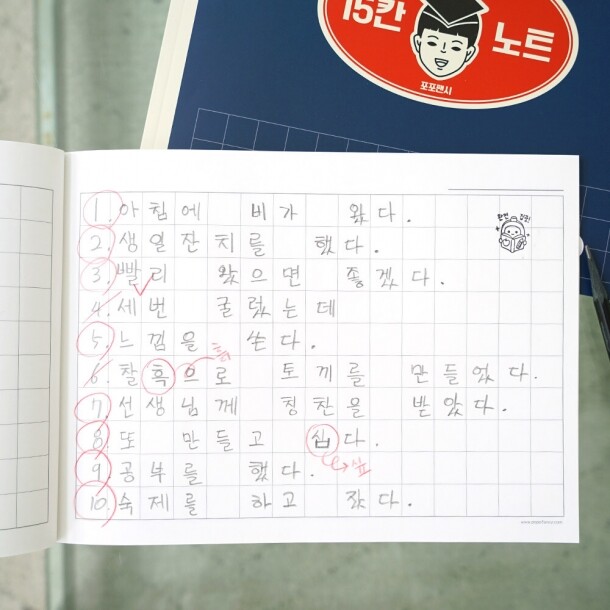 15칸 노트
포포팬시
1. 아침에 비가 왔다.
2. 생일잔치를 했다.
3. 빨리 왔으면 좋겠다.
4. 세번 굴렀는데
5. 느낌을 쓴다.
흙
6. 찰흑으로 토끼를 만들었다.
7. 선생님께 칭찬을 받았다.
8. 또 만들고 십다.
싶
9. 공부를 했다.
10. 숙제를 하고 잤다.